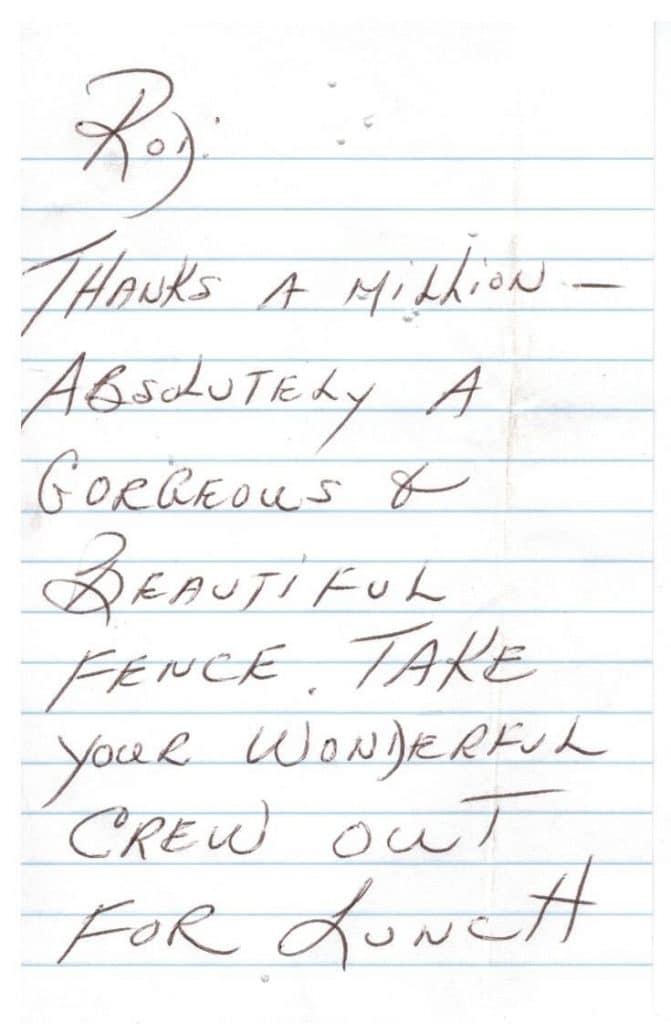 THANKS A MILLION —
ABSOLUTELY A
GORGEOUS &
BEAUTIFUL
FENCE. TAKE
YOUR WONDERFUL
CREW OUT
FOR LUNCH